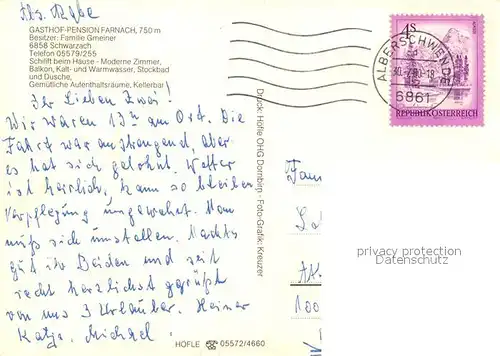 GASTHOF-PENSION FARNACH, 750 m
Besitzer: Familie Gmeiner
6858 Schwarzach
Telefon 05579/255
Schilift beim Hause - Moderne Zimmer,
Balkon, Kalt- und Warmwasser, Stockbad
und Dusche,
Gemütliche Aufenthaltsräume, Kellerbar!
Ihr Lieben Zwei!
Wir waren 13ʰ am Ort. Die
Fahrt war anstrengend, aber
es hat sich gelohnt. Wetter
ist herrlich, kann so bleiben
Verpflegung ungewohnt. Man
muß sich umstellen. Macht's
gut ihr Beiden und seid
recht herzlichst gegrüßt
von uns 3 Urlauber. Heiner
Katja, Michael
HÖFLE ☎ 05572/4660
Druck: Höfle OHG Dornbirn · Foto-Grafik: Kreuzer
4S
REPUBLIK ÖSTERREICH
ALBERSCHWENDE
-18
6861
privacy protection
Datenschutz